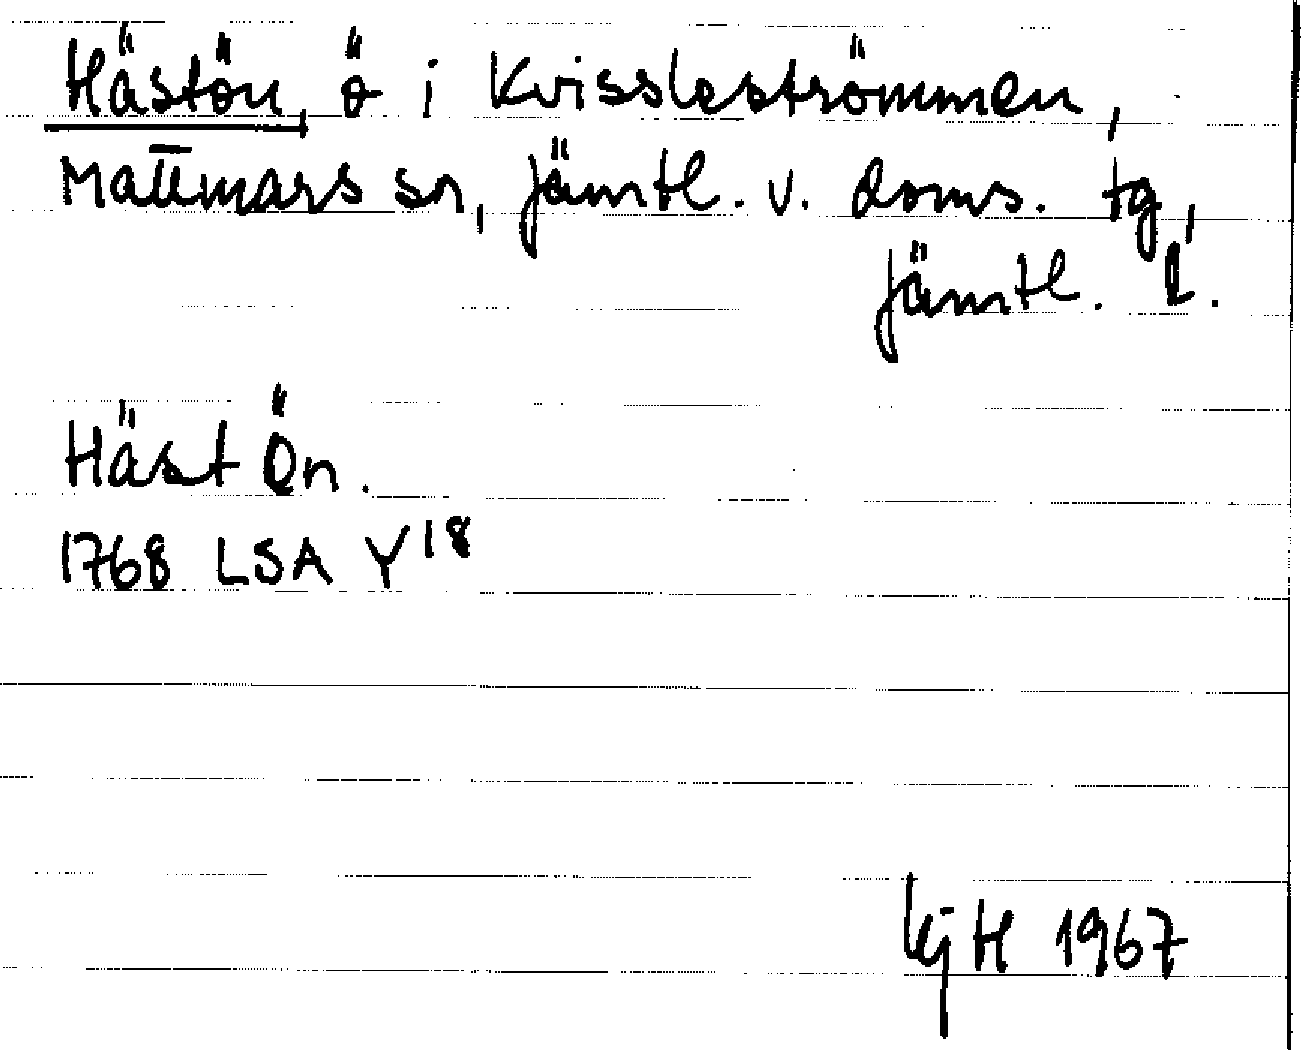 Hästön, ö i Kvissleströmmen,
Mattmars sn, Jämtl. v. doms. tg,
Jämtl. l.
Häst Ön.
1768 LSA Y18
KjH 1967